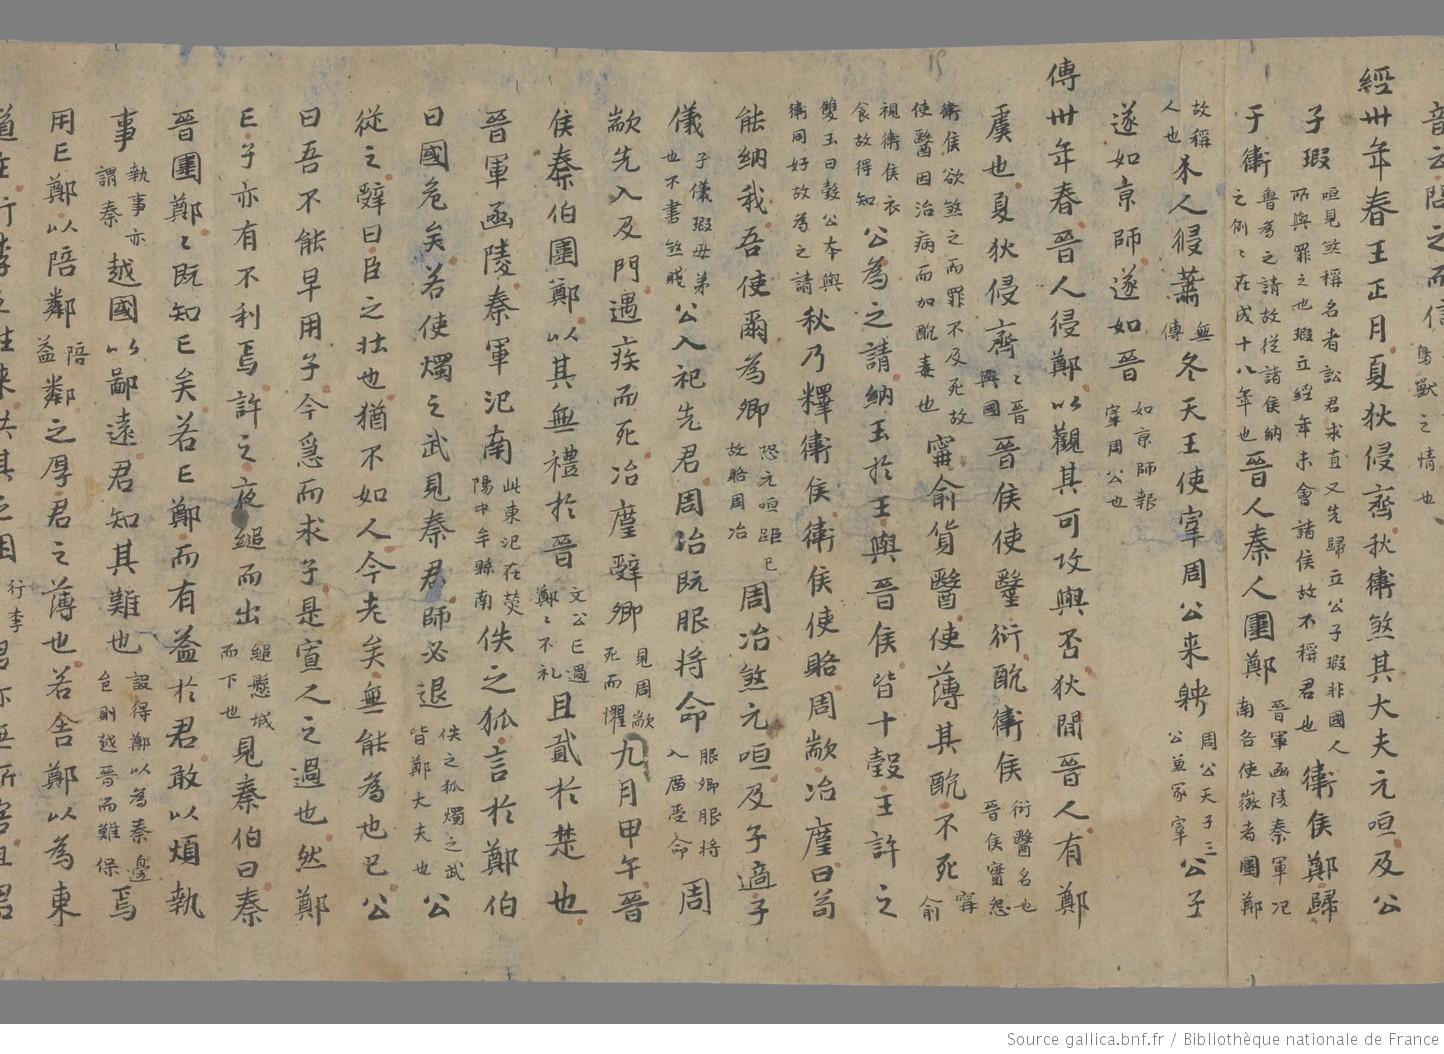 音云問之而信鳥獸之情也
經卅年春王正月夏狄侵齊秋衛煞其大夫元咺及公
子瑕咺見煞稱名者訟君求直又先歸立公子瑕非國人所與罪之也瑕立經年未會諸侯故不稱君也衛侯鄭歸
于衛魯為之請故從諸侯納之例〻在成十八年也晉人秦人圍鄭晉軍函陵秦軍氾南各使微者圍鄭
故稱人也木人侵蕭無傳冬天王使宰周公来聘周公天子三公兼冢宰公子
遂如京師遂如晉如京師報宰周公也
傳卅年春晉人侵鄭以觀其可攻與否狄間晉人有鄭
虞也夏狄侵齊〻晉與國晉侯使毉衍酖衛侯衍醫名也晉侯實怨
衛侯欲煞之而罪不及死故使醫因治病而加酖毒也甯俞貨醫使薄其酖不死甯俞
視衛侯衣食故得知公為之請納玉於王與晉侯皆十瑴王許之
雙玉曰瑴公本與衛同好故為之請秋乃釋衛侯衛侯使賂周歂冶廑曰苟
能納我吾使爾為卿恐元咺距己故賂周冶周冶煞元咺及子適子
儀子儀瑕母弟也不書煞賤公入祀先君周冶既服將命服卿服將入廟受命周
歂先入及門遇疾而死冶廑辭卿見周歂死而懼九月甲午晉
侯秦伯圍鄭以其無禮於晉文公亡過鄭〻不礼且貳於楚也
晉軍函陵秦軍氾南此東氾在熒陽中牟縣南佚之狐言於鄭伯
曰國危矣若使燭之武見秦君師必退佚之狐燭之武皆鄭大夫也公
從之辭曰臣之壯也猶不如人今老矣無能為也已公
曰吾不能早用子今急而求子是寡人之過也然鄭
亡子亦有不利焉許之夜縋而出縋懸城而下也見秦伯曰秦
晉圍鄭〻既知亡矣若亡鄭而有益於君敢以煩執
事執事亦謂秦越國以鄙遠君知其難也設得鄭以為秦邊邑則越晉而難保焉
用亡鄭以陪鄰陪益鄰之厚君之薄也若舍鄭以為東
道主行李之往来共其乏困行李君亦無所害且君